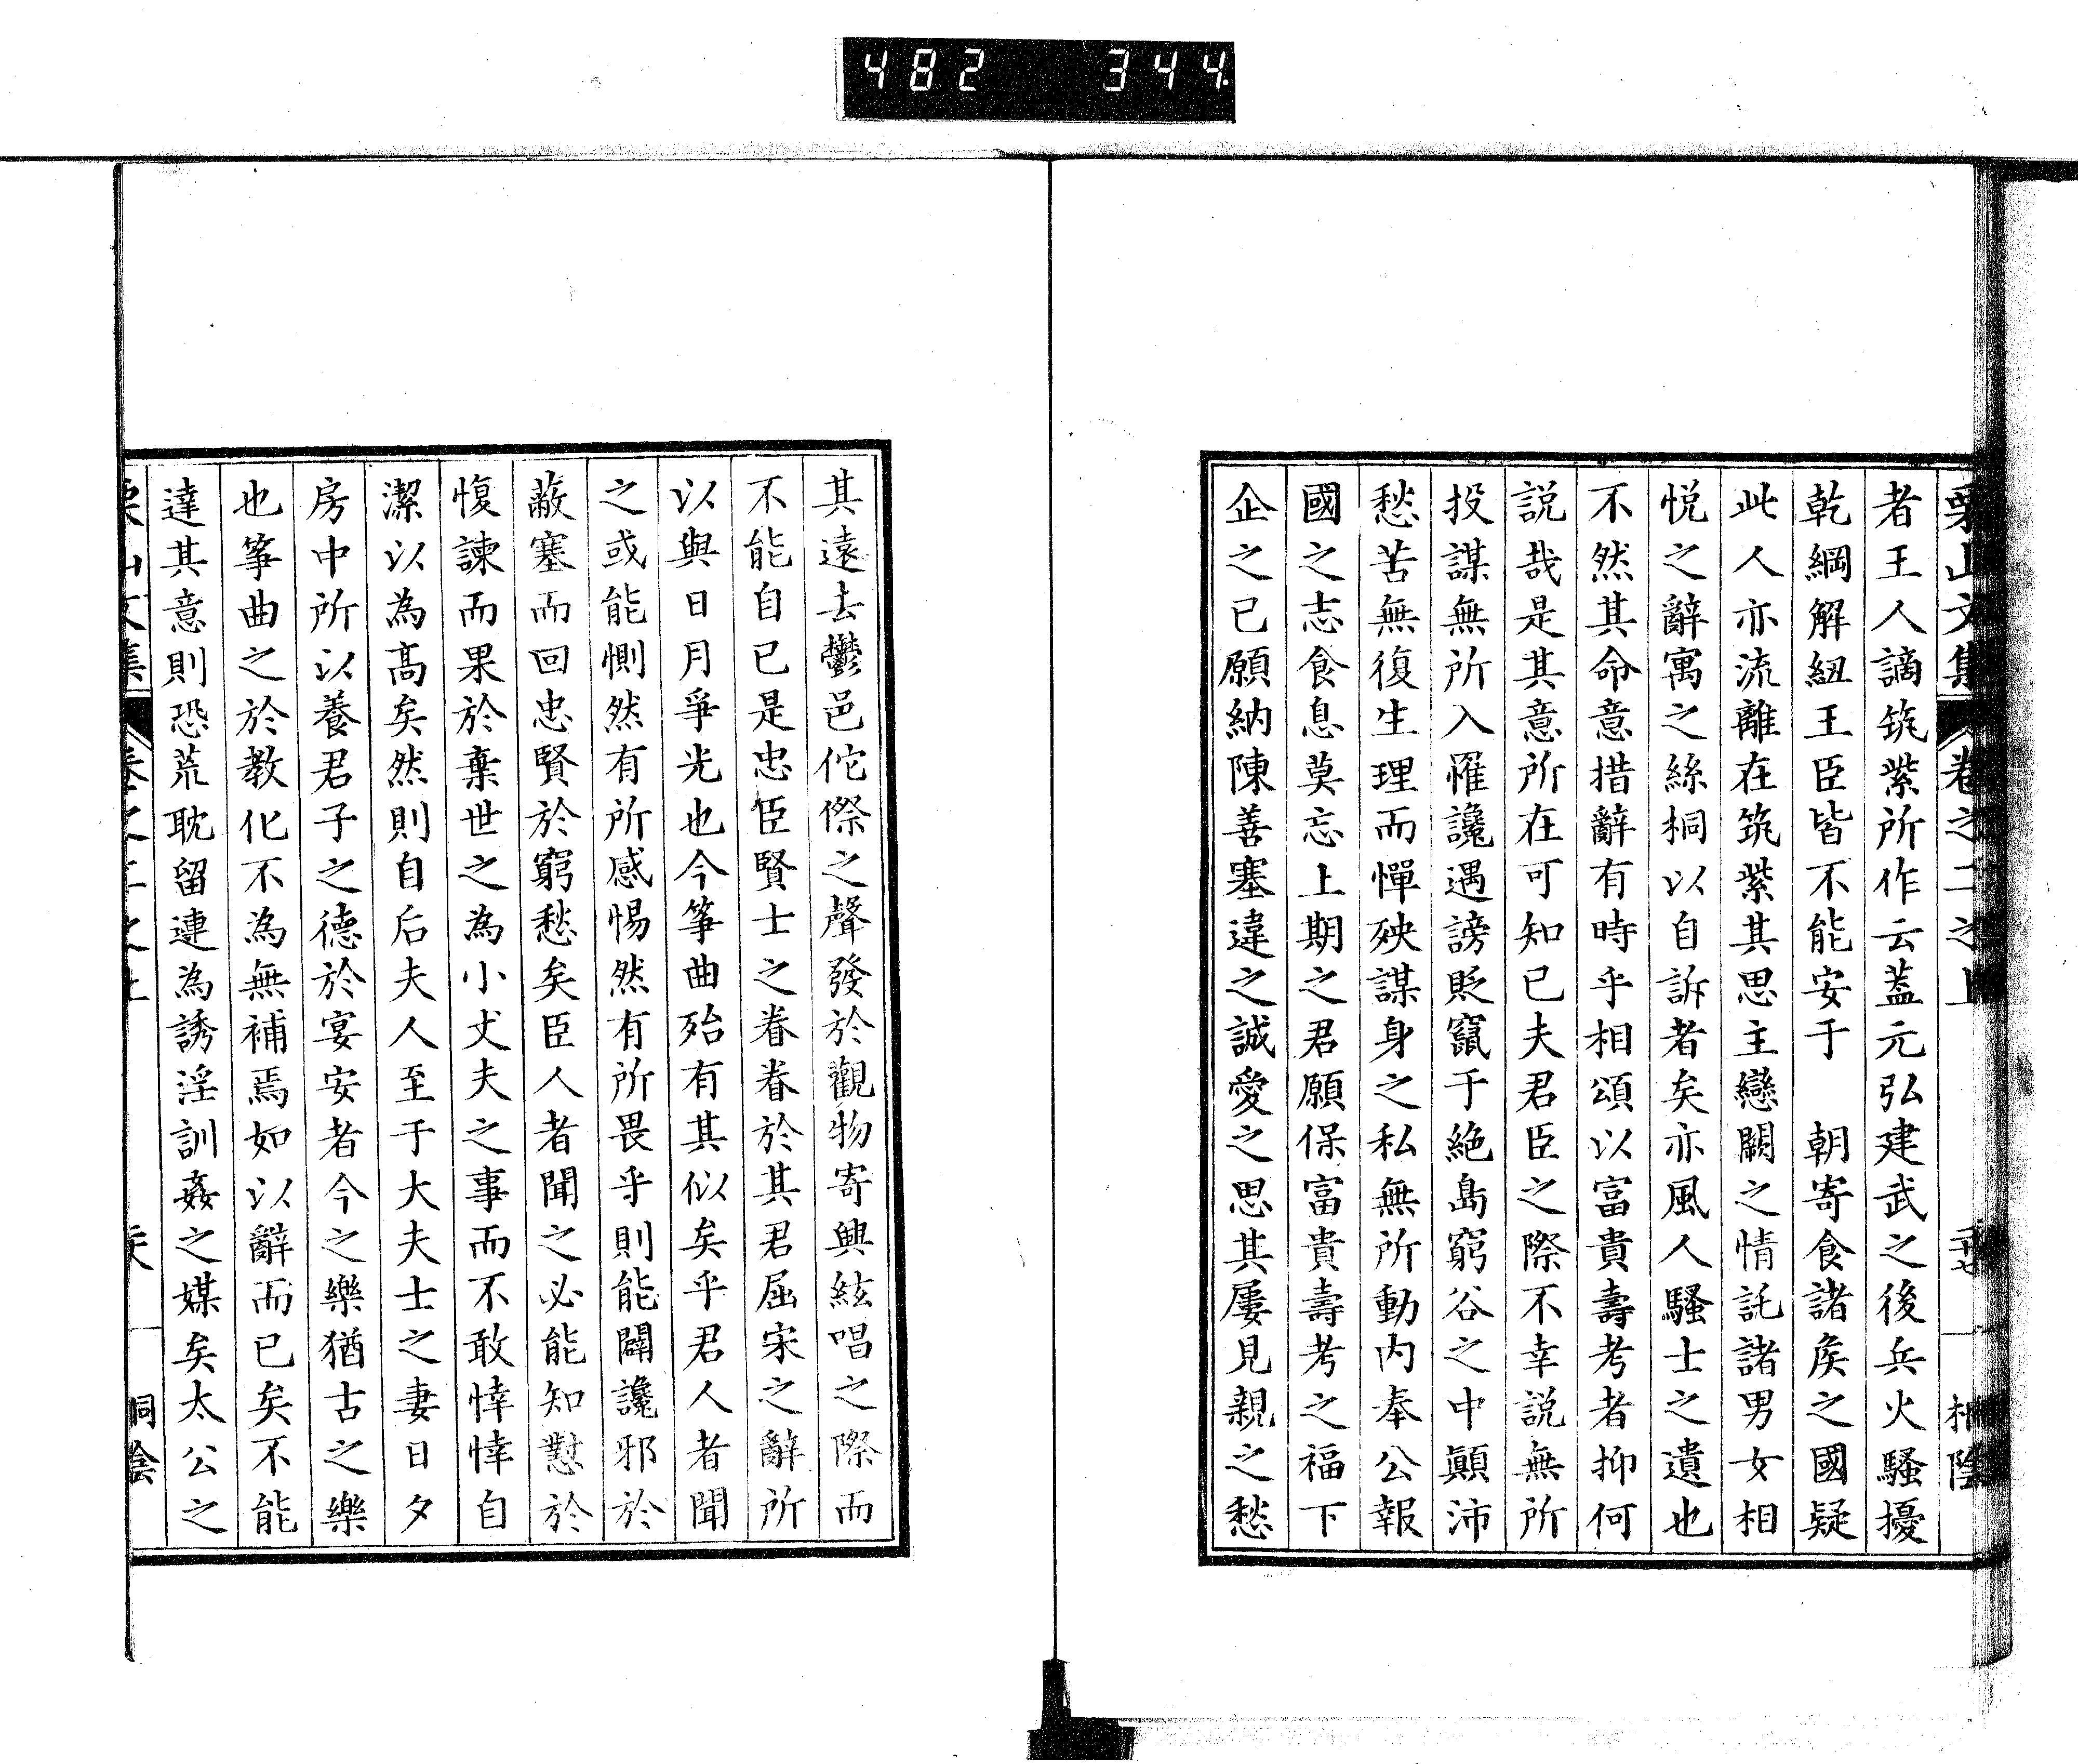 482 344
栗山文集 卷之二之上 桐陰
者王人謫筑紫所作云蓋元弘建武之後兵火騷擾
乾綱解紐王臣皆不能安于　朝寄食諸矦之國疑
此人亦流離在筑紫其思主戀闕之情託諸男女相
悦之辭寓之絲桐以自訴者矣亦風人騷士之遺也
不然其命意措辭有時乎相頌以富貴壽考者抑何
説哉是其意所在可知已夫君臣之際不幸説無所
投謀無所入罹讒遇謗貶竄于絶島窮谷之中顚沛
愁苦無復生理而憚殃謀身之私無所動内奉公報
國之志食息莫忘上期之君願保富貴壽考之福下
企之已願納陳善塞違之誠愛之思其屢見親之愁
其遠去鬱邑侘傺之聲發於觀物寄興絃唱之際而
不能自已是忠臣賢士之眷眷於其君屈宋之辭所
以與日月爭光也今箏曲殆有其似矣乎君人者聞
之或能惻然有所感惕然有所畏乎則能闢讒邪於
蔽塞而回忠賢於窮愁矣臣人者聞之必能知懟於
愎諫而果於棄世之為小丈夫之事而不敢悻悻自
潔以為高矣然則自后夫人至于大夫士之妻日夕
房中所以養君子之德於宴安者今之樂猶古之樂
也箏曲之於教化不為無補焉如以辭而已矣不能
達其意則恐荒耽留連為誘淫訓姦之媒矣太公之
栗山文集 卷之二之上 桐陰